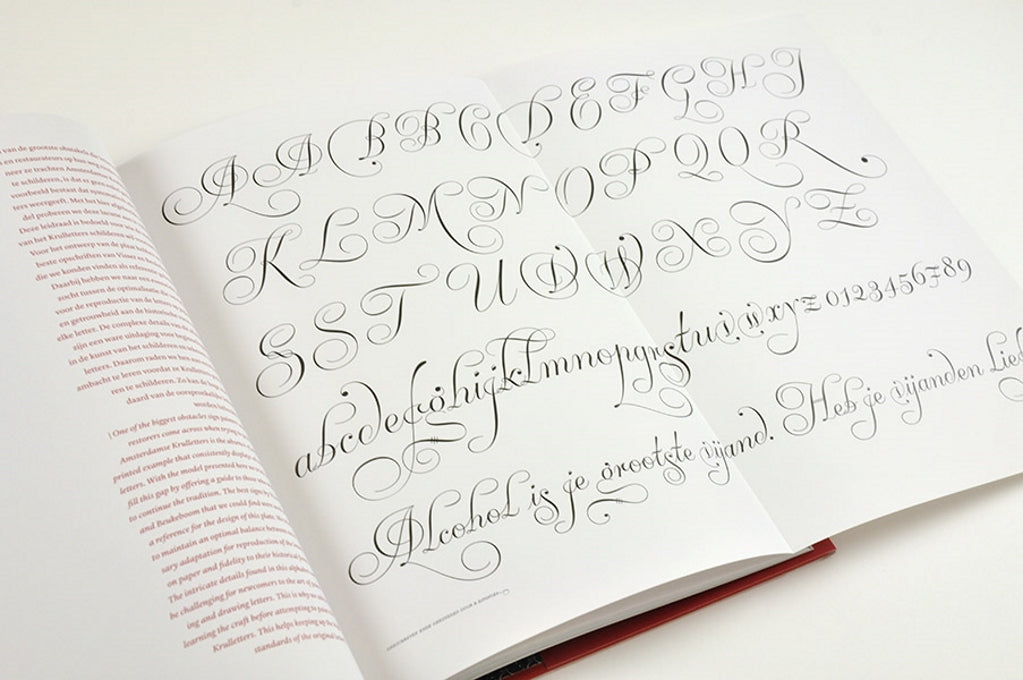 van de grootste obstakels
en restaurateurs op hun weg
neer ze trachten Amsterdamse
te schilderen, is dat er geen
voorbeeld bestaat dat
ters weergeeft. Met het hier
del proberen we deze
Deze leidraad is bedoeld voor
van het Krulletters schilderen
Voor het ontwerp van de plaat
beste opschriften van Visser
die we konden vinden als
Daarbij hebben we naar een
zocht tussen de optimalisatie
voor de reproductie van de letters
en getrouwheid aan de historische
elke letter. De complexe details van
zijn een ware uitdaging voor
in de kunst van het schilderen
letters. Daarom raden we
ambacht te leren voordat ze
ren te schilderen. Zo kan de
daard van de oorspronkelijke
worden
| One of the biggest obstacles sign
restorers come across when trying
Amsterdamse Krulletters is the absence
printed example that consistently displays
letters. With the model presented here we
fill this gap by offering a guide to those
to continue the tradition. The best signs
and Beukeboom that we could find were
a reference for the design of this plate.
to maintain an optimal balance between
sary adaptation for reproduction of the
on paper and fidelity to their historical
The intricate details found in this alphabet
be challenging for newcomers to the art of
ing and drawing letters. This is why we
learning the craft before attempting to
Krulletters. This helps keeping up the
standards of the original
A A B B C D E F G H I
K L M N O P Q O R
S S T U V W X Y Z
a b c d e f g h i j k l m n o p q r s t u v w x y z 0 1 2 3 4 5 6 7 8 9
Alcohol is je grootste vijand. Heb je vijanden Lief